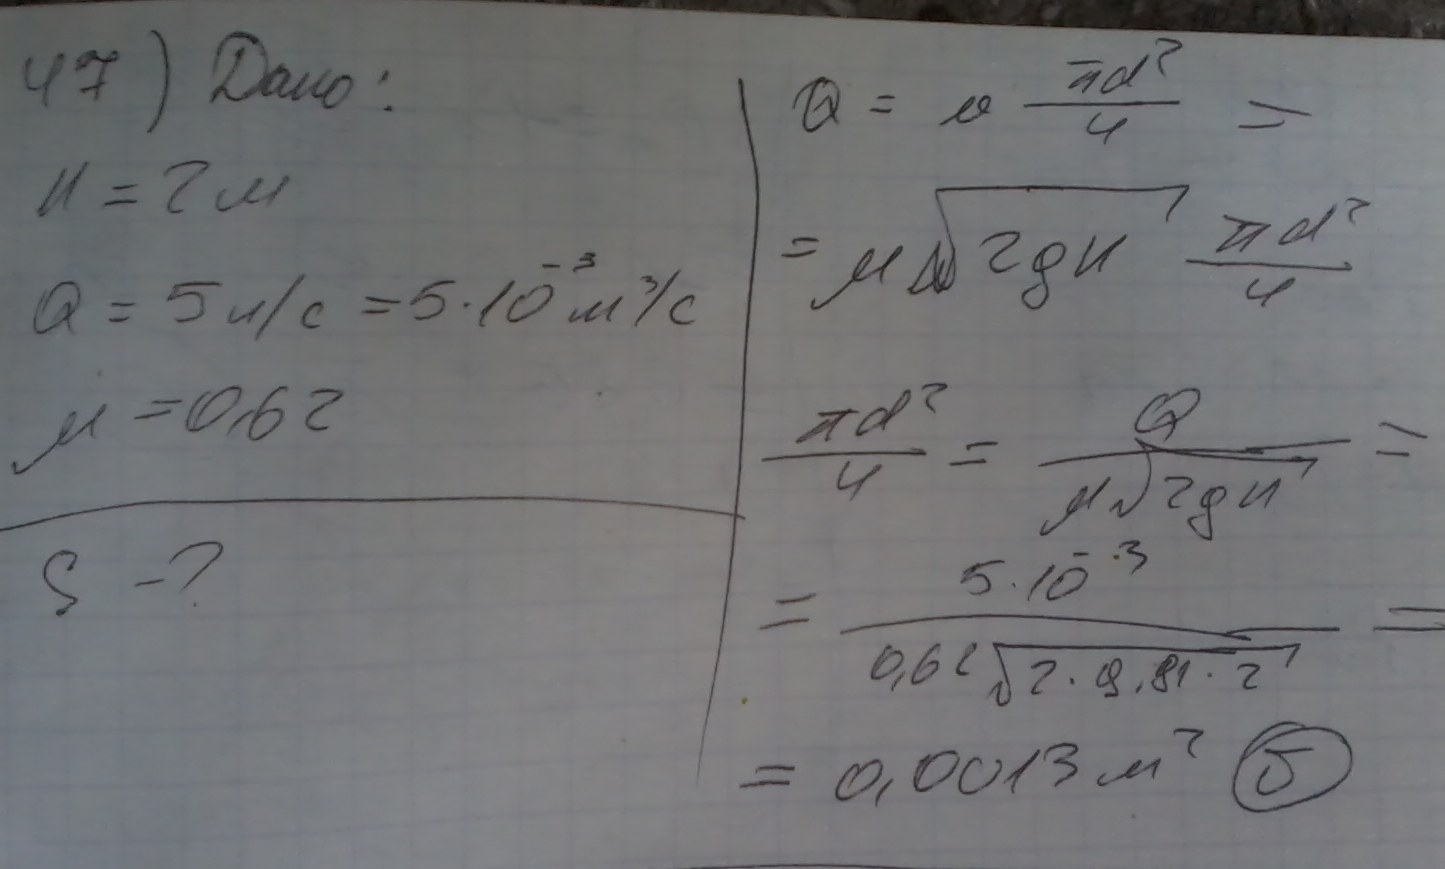 47) Дано:
H = 2 м
Q = 5 л/с = 5·10⁻³ м³/с
μ = 0,62
S - ?
Q = υ πd²/4 =
= μ√2gH πd²/4
πd²/4 = Q/μ√2gH =
= 5·10⁻³/0,62√2·9,81·2 =
= 0,0013 м² б